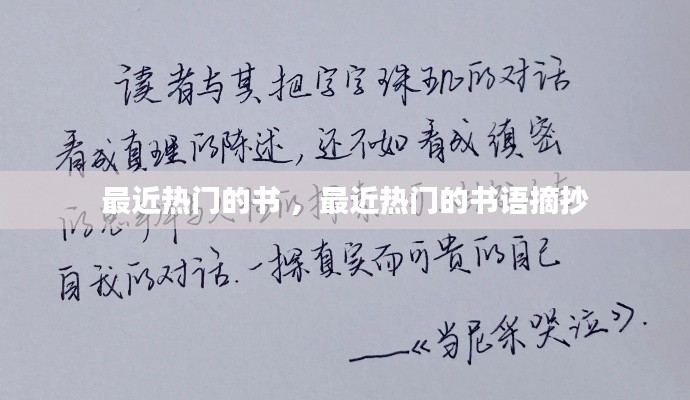 读者与其把字字珠玑的对话
看成真理的陈述，还不如看成缜密
最近热门的书 ，最近热门的书语摘抄
的思辨与
自我的对话.一探真实而可贵的自己
——《当尼采哭泣》.